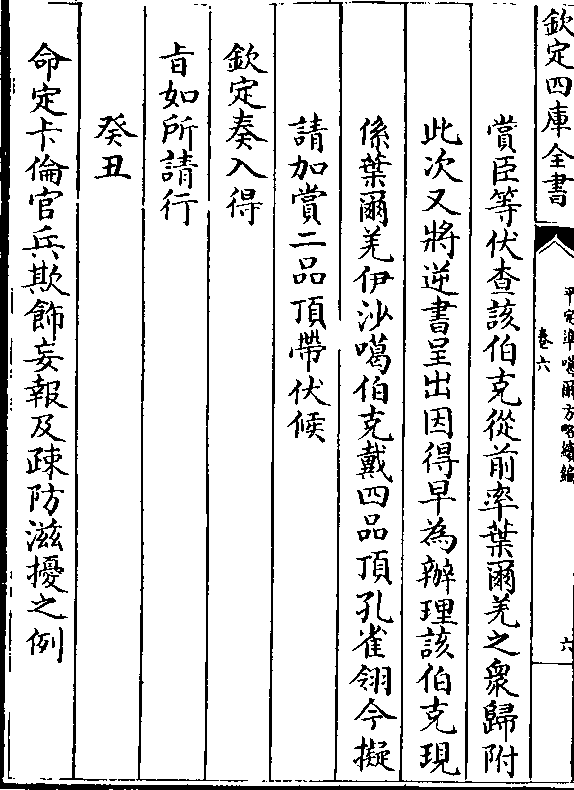 欽定四庫全書
平定準噶爾方略續編
卷六
六
賞臣等伏查該伯克從前率葉爾羌之衆歸附
此次又將逆書呈出因得早為辦理該伯克現
係葉爾羌伊沙噶伯克戴四品頂孔雀翎今擬
請加賞二品頂帶伏候
欽定奏入得
旨如所請行
癸丑
命定卡倫官兵欺飾妄報及疎防滋擾之例